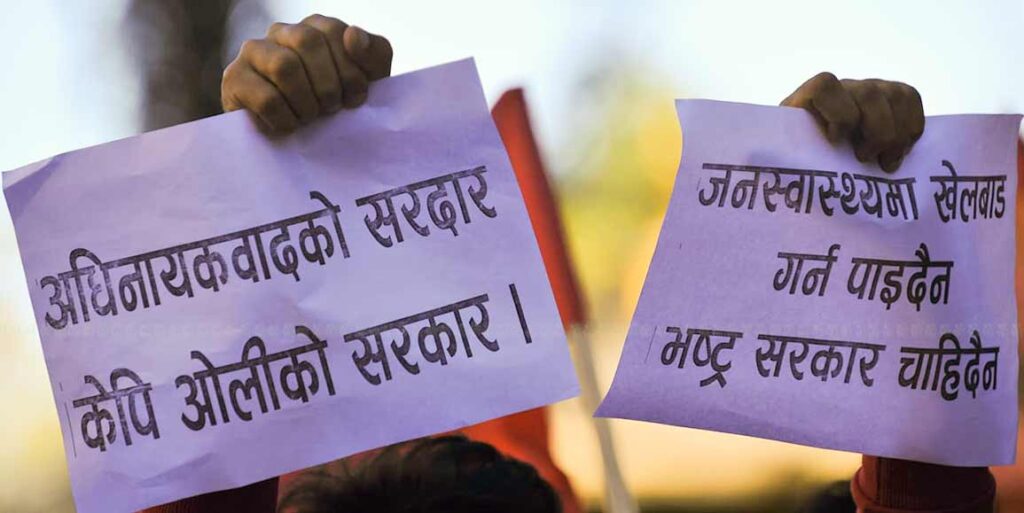 अधिनायकवादको सरदार
केपि ओलीको सरकार ।
जनस्वास्थ्यमा खेलबाड
गर्न पाइदैन
भष्ट्र सरकार चाहिदैन